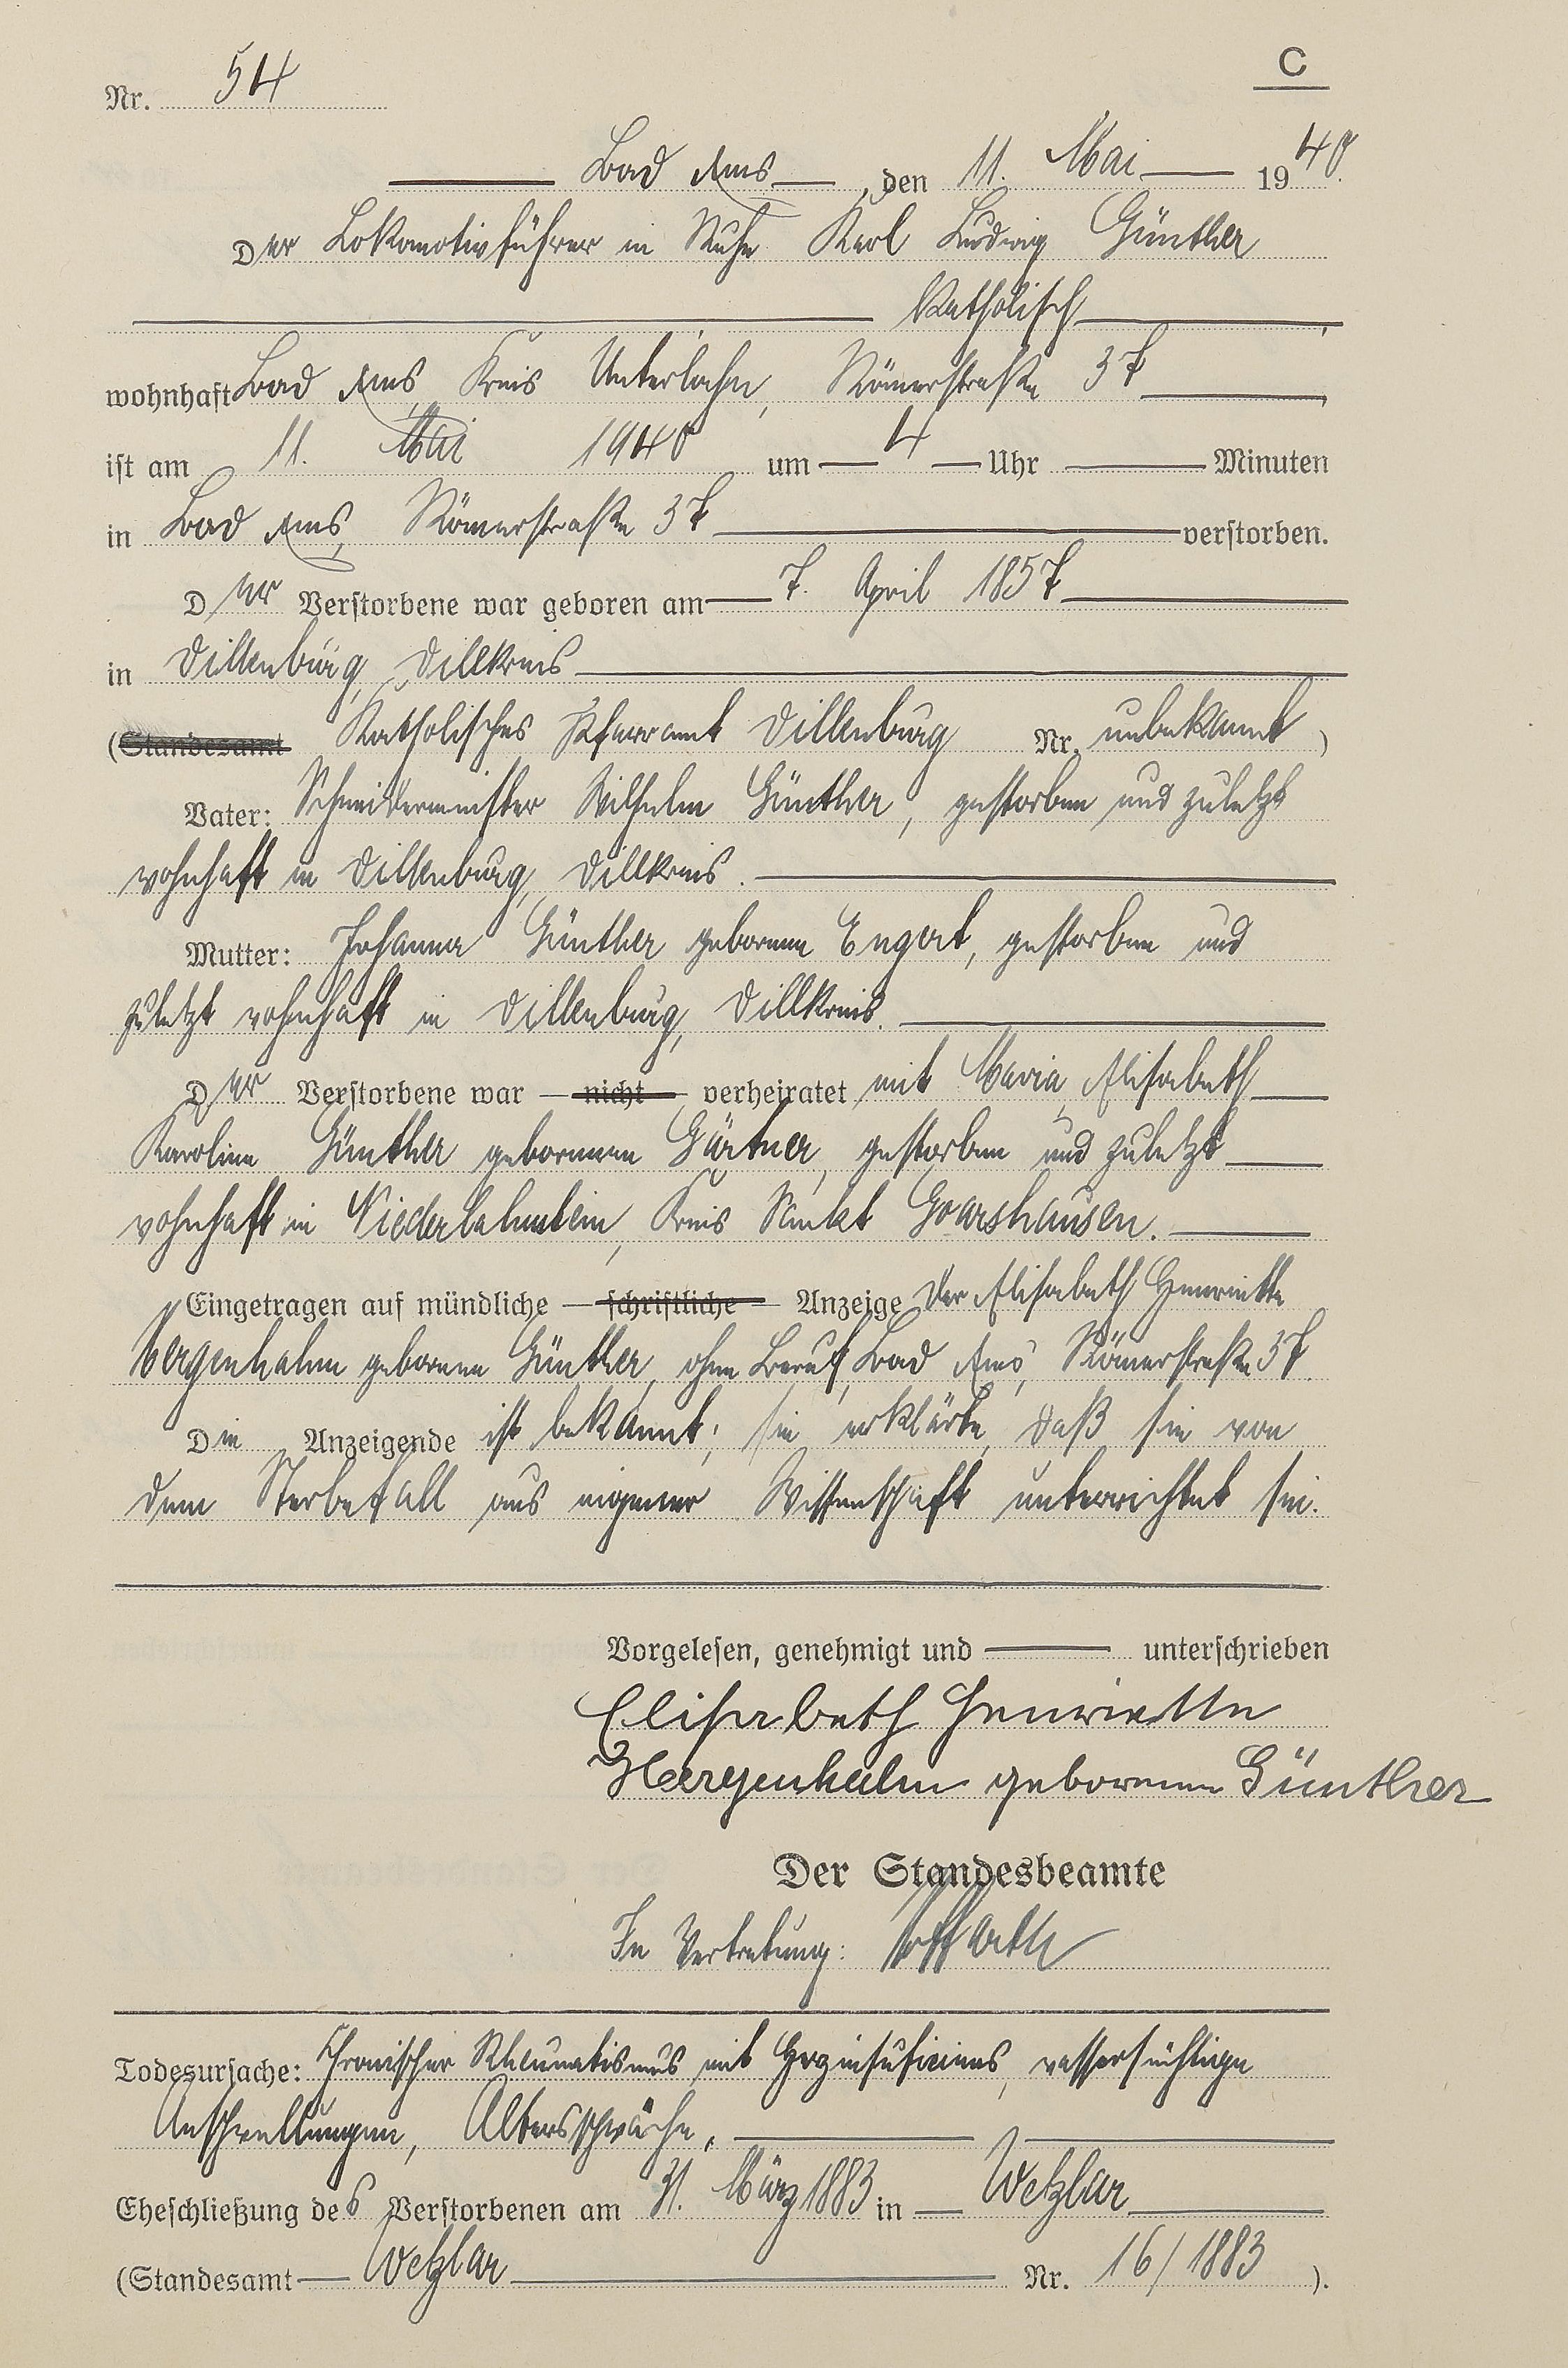 C
Nr. 54
Bad Ems, den 11. Mai 1940.
Der Lokomotivführer in Ruhe Karl Ludwig Günther
katholisch,
wohnhaft Bad Ems, Kreis Unterlahn, Römerstraße 37,
ist am 11. Mai 1940 um 4 Uhr Minuten
in Bad Ems, Römerstraße 37 verstorben.
Der Verstorbene war geboren am 7. April 1857
in Dillenburg, Dillkreis
(Standesamt Katholisches Pfarramt Dillenburg Nr. unbekannt)
Vater: Schneidermeister Wilhelm Günther, gestorben und zuletzt
wohnhaft in Dillenburg, Dillkreis.
Mutter: Johanna Günther geborenen Engert, gestorben und
zuletzt wohnhaft in Dillenburg, Dillkreis.
Der Verstorbene war — nicht — verheiratet mit Maria Elisabeth
Karoline Günther geborenen Gärtner, gestorben und zuletzt
wohnhaft in Niederlahnstein, Kreis Sankt Goarshausen.
Eingetragen auf mündliche — schriftliche — Anzeige der Elisabeth Henriette
Hergenhahn geborenen Günther, ohne Beruf, Bad Ems, Römerstraße 37.
Die Anzeigende ist bekannt; sie erklärte, daß sie von
dem Sterbefall aus eigener Wissenschaft unterrichtet sei.
Vorgelesen, genehmigt und unterschrieben
Elisabeth Henriette
Hergenhahn geborenen Günther
Der Standesbeamte
In Vertretung:
Todesursache: Chronischer Rheumatismus mit Herzinsuficiens, wassersüchtige
Anschwellungen, Altersschwäche.
Eheschließung des Verstorbenen am 31. März 1883 in Wetzlar
(Standesamt Wetzlar Nr. 16/1883).